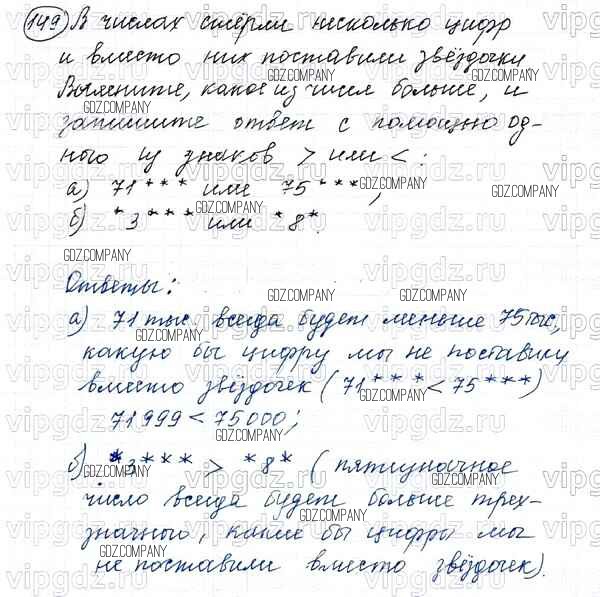 149 В числах стёрли несколько цифр
и вместо них поставили звёздочки
Выясните, какое из чисел больше, и
запишите ответ с помощью од-
ного из знаков > или < :
а) 71*** или 75***;
б) *3*** или *8*.
Ответы:
а) 71 тыс. всегда будет меньше 75 тыс,
какую бы цифру мы не поставили
вместо звёздочек (71*** < 75***)
71999 < 75000;
б) *3*** > *8* (пятизначное
число всегда будет больше трех-
значного, какие бы цифры мы
не поставили вместо звёздочек).